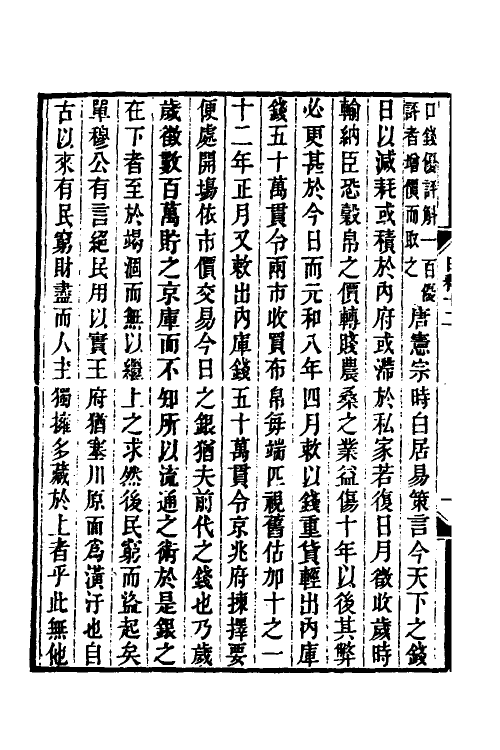 口錢優評斛一百優
評者增價而取之
唐憲宗時白居易策言今天下之錢
日以減耗或積於內府或滯於私家若復日月徵收歲時
輸納臣恐穀帛之價轉賤農桑之業益傷十年以後其弊
必更甚於今日而元和八年四月敕以錢重貨輕出內庫
錢五十萬貫令兩市收買布帛每端匹視舊估加十之一
十二年正月又敕出內庫錢五十萬貫令京兆府揀擇要
便處開場依市價交易今日之銀猶夫前代之錢也乃歲
歲徵數百萬貯之京庫而不知所以流通之術於是銀之
在下者至於竭涸而無以繼上之求然後民窮而盜起矣
單穆公有言絕民用以實王府猶塞川原而爲潢汙也自
古以來有民窮財盡而人主獨擁多藏於上者乎此無他